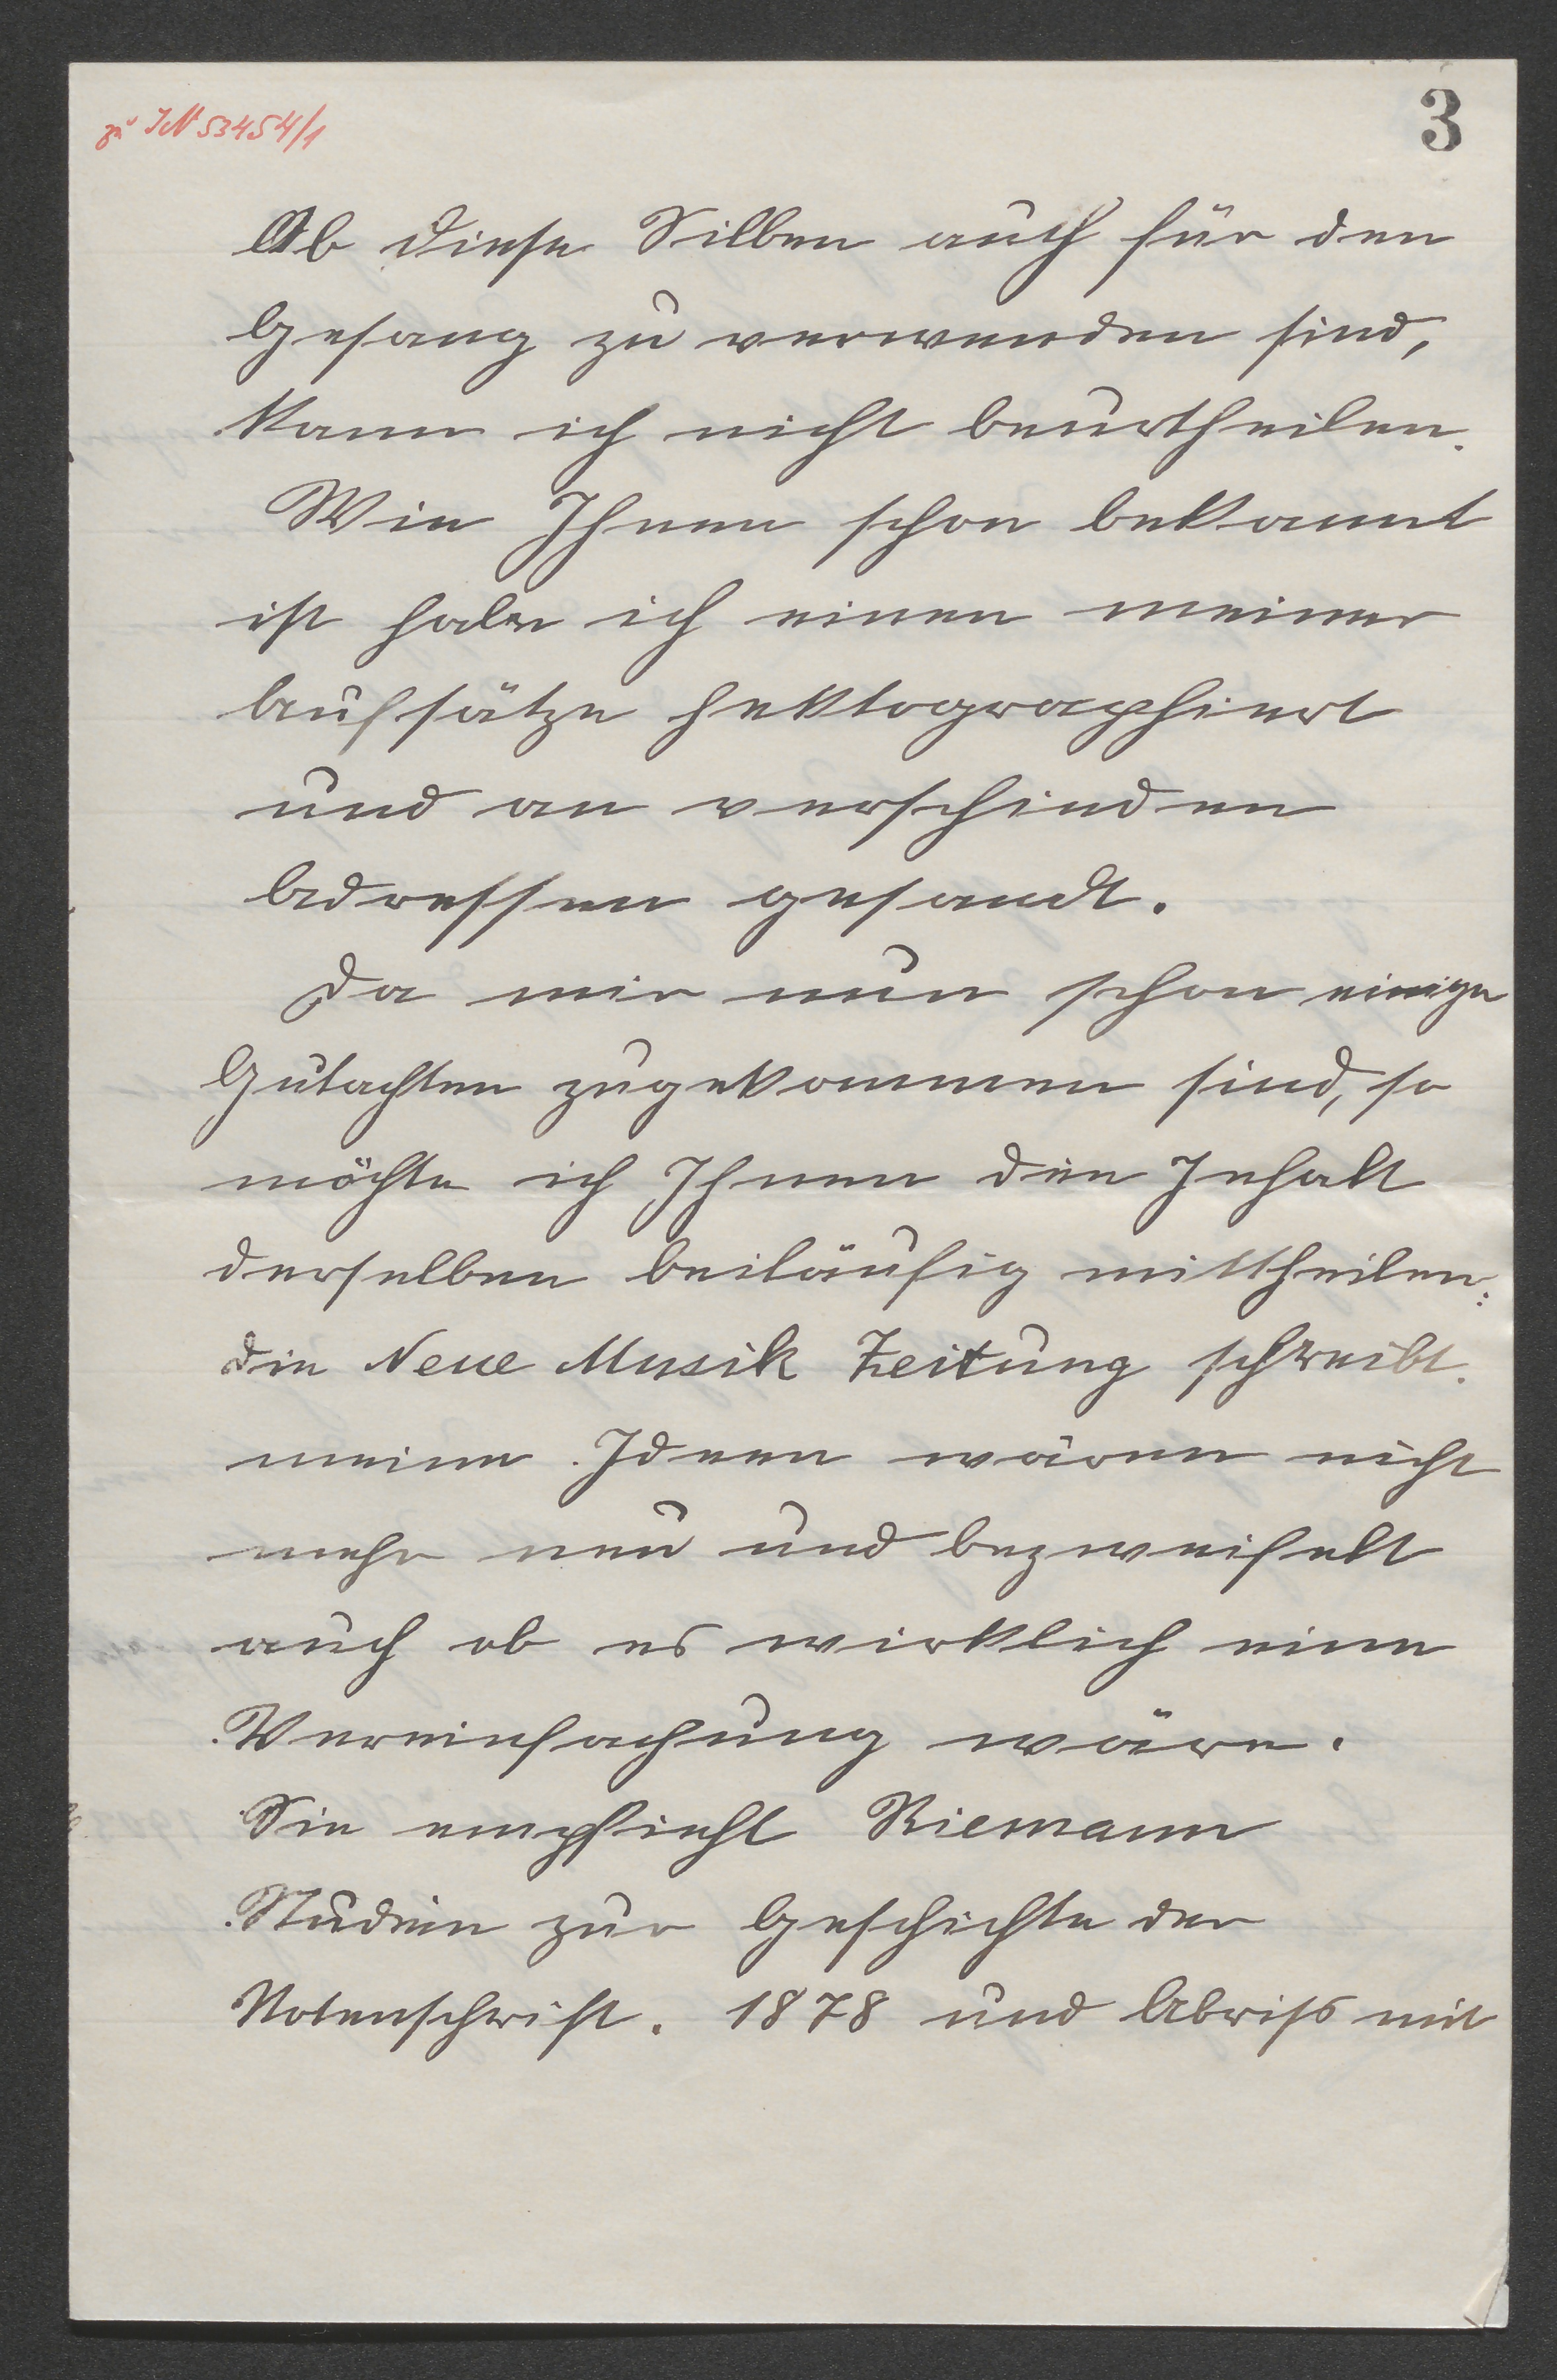 zu IN 53454/1
3
Ob diese Silben auch für den
Gesang zu verwenden sind,
kann ich nicht beurtheilen.
Wie Ihnen schon bekannt
ist habe ich einen meiner
Aufsätze hektographiert
und an verschieden
Adressen gesandt.
Da mir nun schon einige
Gutachten zugekommen sind, so
möchte ich Ihnen den Inhalt
derselben beiläufig mittheilen:
die Neue Musik Zeitung schreibt.
meine Ideen wären nicht
mehr neu und bezweifelt
auch ob es wirklich eine
Vereinfachung wäre.
Sie empfiehlt Riemann
Studien zur Geschichte der
Notenschrift. 1878 und Abriss mit